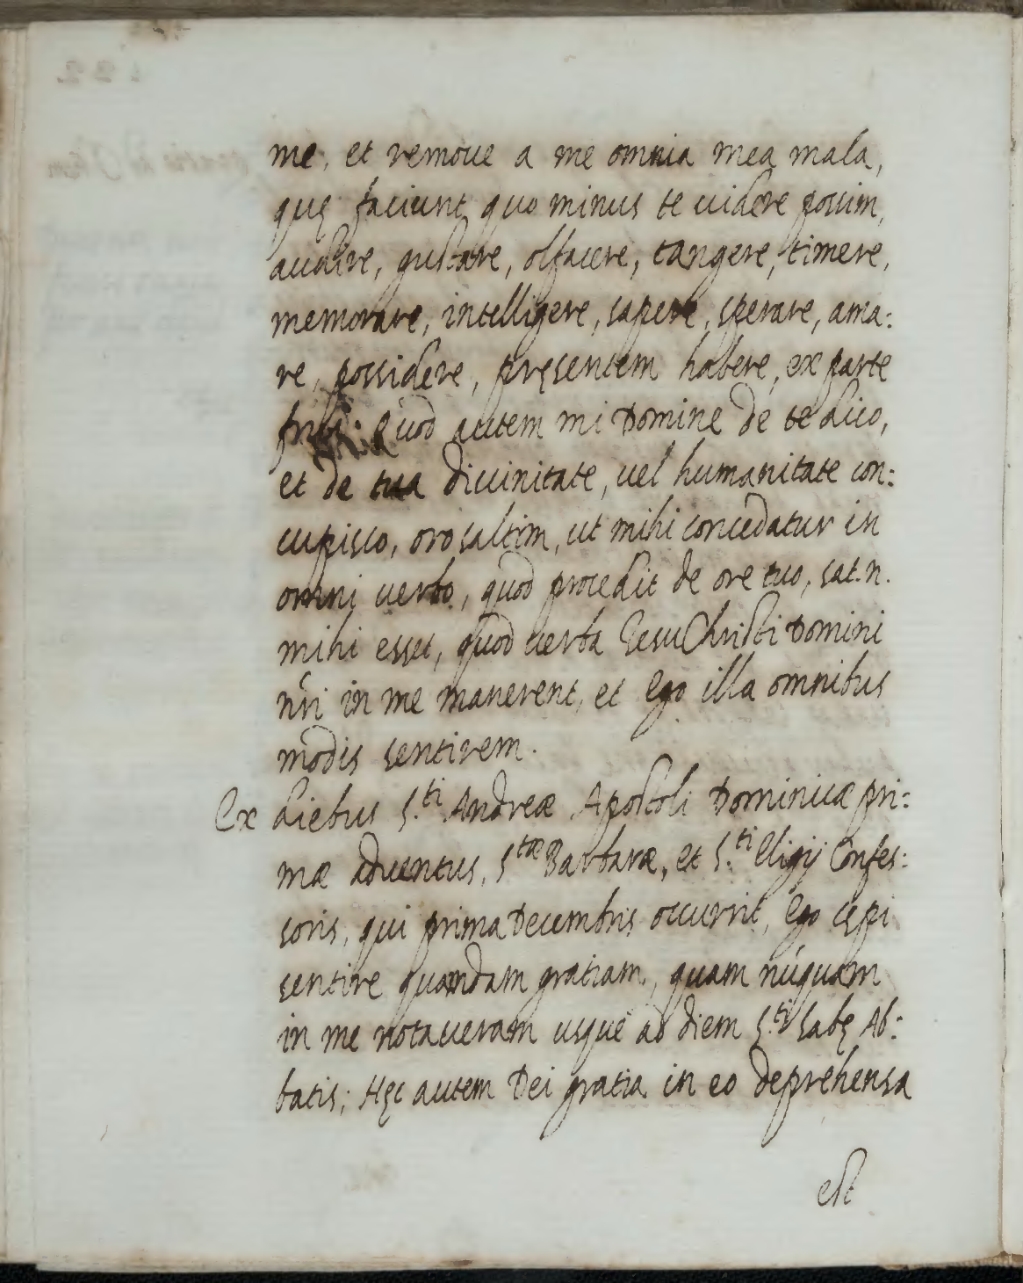 me, et remoue a me omnia mea mala,
quę faciunt quo minus te uidere possim,
audire, gustare, olfacere, tangere, timere,
memorare, intelligere, sapere, sperare, ama:
re, possidere, pręsentem habere, ex parte
frui. Quod autem mi Domine de te dico,
et de tua diuinitate, uel humanitate con:
cupisco, oro saltim, ut mihi concedatur in
omni uerbo, quod procedit de ore tuo, sat. n.
mihi esset, quod uerba Iesu Christi Domini
nri in me manerent, et Ego illa omnibus
modis sentirem.
Ex diebus S.ti Andreæ Apostoli Dominicæ pri:
mæ Aduentus, S.tæ Barbaræ, et S.ti Eligij Confes:
soris, qui prima Decembris occurrit, Ego cępi
sentire quandam gratiam, quam núquam
in me notaueram usque ad diem S.ti Sabę Ab:
batis; Hęc autem Dei gratia in eo deprehensa
est